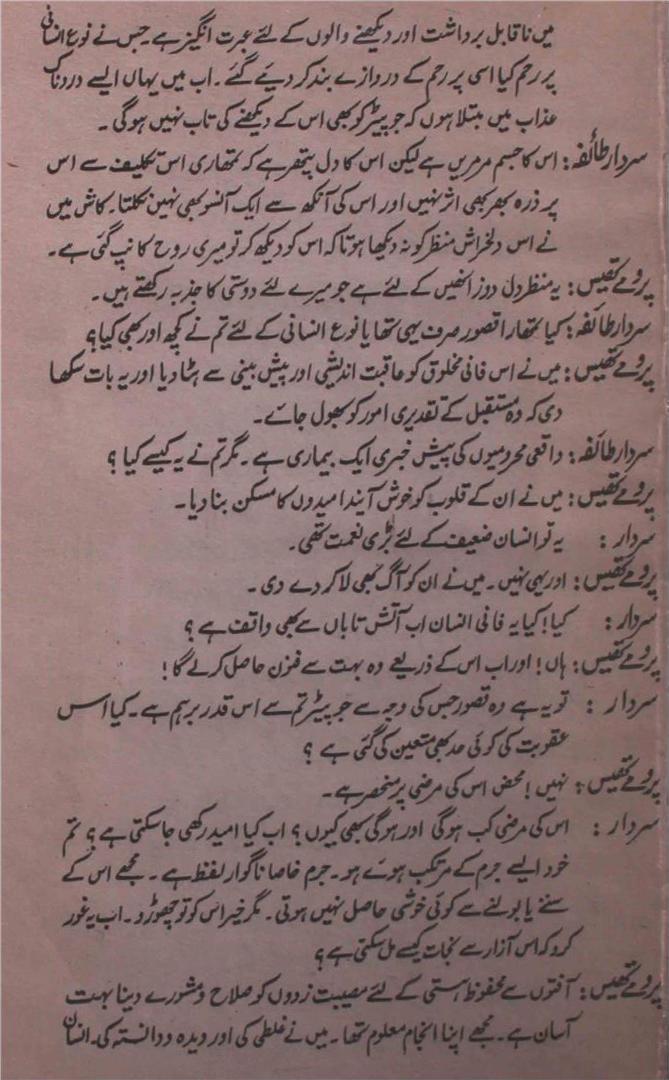 میں ناقابل برداشت اور دیکھنے والوں کے لئے عبرت انگیز ہے۔ جس نے نوع انسانی
پر رحم کیا اسی پر رحم کے دروازے بند کر دیے گئے۔ اب میں یہاں ایسے دردناک
عذاب میں مبتلا ہوں کہ جوپیٹر کو بھی اس کے دیکھنے کی تاب نہیں ہوگی۔
سردار طائفہ: اس کا جسم مرمریں ہے لیکن اس کا دل پتھر ہے کہ تمھاری اس تکلیف سے اس
پر ذرہ بھر بھی اثر نہیں اور اس کی آنکھ سے ایک آنسو بھی نہیں نکلتا۔ کاش میں
نے اس دلخراش منظر کو نہ دیکھا ہوتا کہ اس کو دیکھ کر تو میری روح کانپ گئی ہے۔
پرومے تھیس: یہ منظر دل دوز انھیں کے لئے ہے جو میرے لئے دوستی کا جذبہ رکھتے ہیں۔
سردار طائفہ: کیا تمھارا قصور صرف یہی تھا یا نوع انسانی کے لئے تم نے کچھ اور بھی کیا؟
پرومے تھیس: میں نے اس فانی مخلوق کو عاقبت اندیشی اور پیش بینی سے ہٹا دیا اور یہ بات سکھا
دی کہ وہ مستقبل کے تقدیری امور کو بھول جائے۔
سردار طائفہ: واقعی محرومیوں کی پیش خبری ایک بیماری ہے۔ مگر تم نے یہ کیسے کیا؟
پرومے تھیس: میں نے ان کے قلوب کو خوش آیند امیدوں کا مسکن بنا دیا۔
سردار: یہ تو انسان ضعیف کے لئے بڑی نعمت تھی۔
پرومے تھیس: اور یہی نہیں۔ میں نے ان کو آگ بھی لا کر دے دی۔
سردار: کیا! کیا یہ فانی انسان اب آتش تاباں سے بھی واقف ہے؟
پرومے تھیس: ہاں! اور اب اس کے ذریعے وہ بہت سے فنون حاصل کر لے گا!
سردار: تو یہ ہے وہ قصور جس کی وجہ سے جوپیٹر تم سے اس قدر برہم ہے۔ کیا اس
عقوبت کی کوئی حد بھی متعین کی گئی ہے؟
پرومے تھیس: نہیں! محض اس کی مرضی پر منحصر ہے۔
سردار: اس کی مرضی کب ہوگی اور ہوگی بھی کیوں؟ اب کیا امید رکھی جا سکتی ہے؟ تم
خود ایسے جرم کے مرتکب ہوئے ہو۔ جرم خاصا ناگوار لفظ ہے۔ مجھے اس کے
سننے یا بولنے سے کوئی خوشی حاصل نہیں ہوتی۔ مگر خیر اس کو تو چھوڑو۔ اب یہ غور
کرو کہ اس آزار سے نجات کیسے مل سکتی ہے؟
پرومے تھیس: آفتوں سے محفوظ ہستی کے لئے مصیبت زدوں کو صلاح و مشورے دینا بہت
آسان ہے۔ مجھے اپنا انجام معلوم تھا۔ میں نے غلطی کی اور دیدہ و دانستہ کی۔ انسان